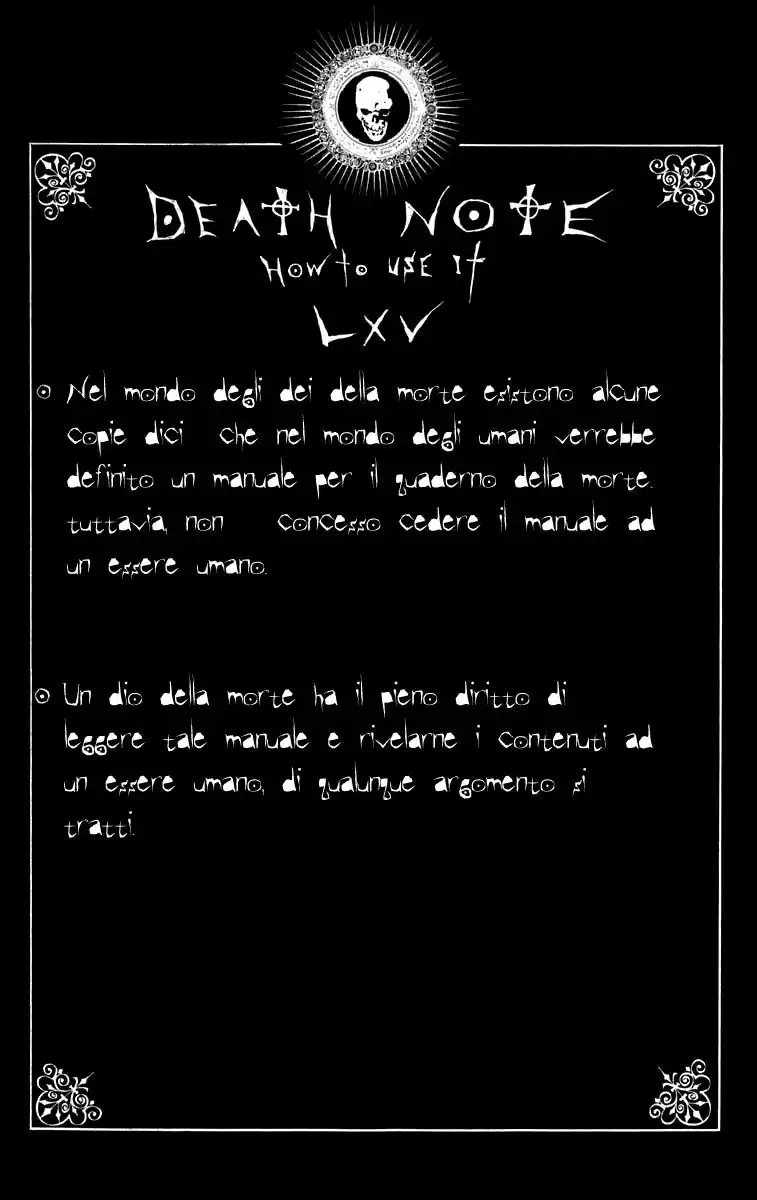 DEATH NOTE
HOW TO USE IT
LXV
Nel mondo degli dei della morte esistono alcune
copie dici che nel mondo degli umani verrebbe
definito un manuale per il quaderno della morte.
tuttavia, non concesso cedere il manuale ad
un essere umano.
Un dio della morte ha il pieno diritto di
leggere tale manuale e rivelarne i contenuti ad
un essere umano, di qualunque argomento si
tratti.